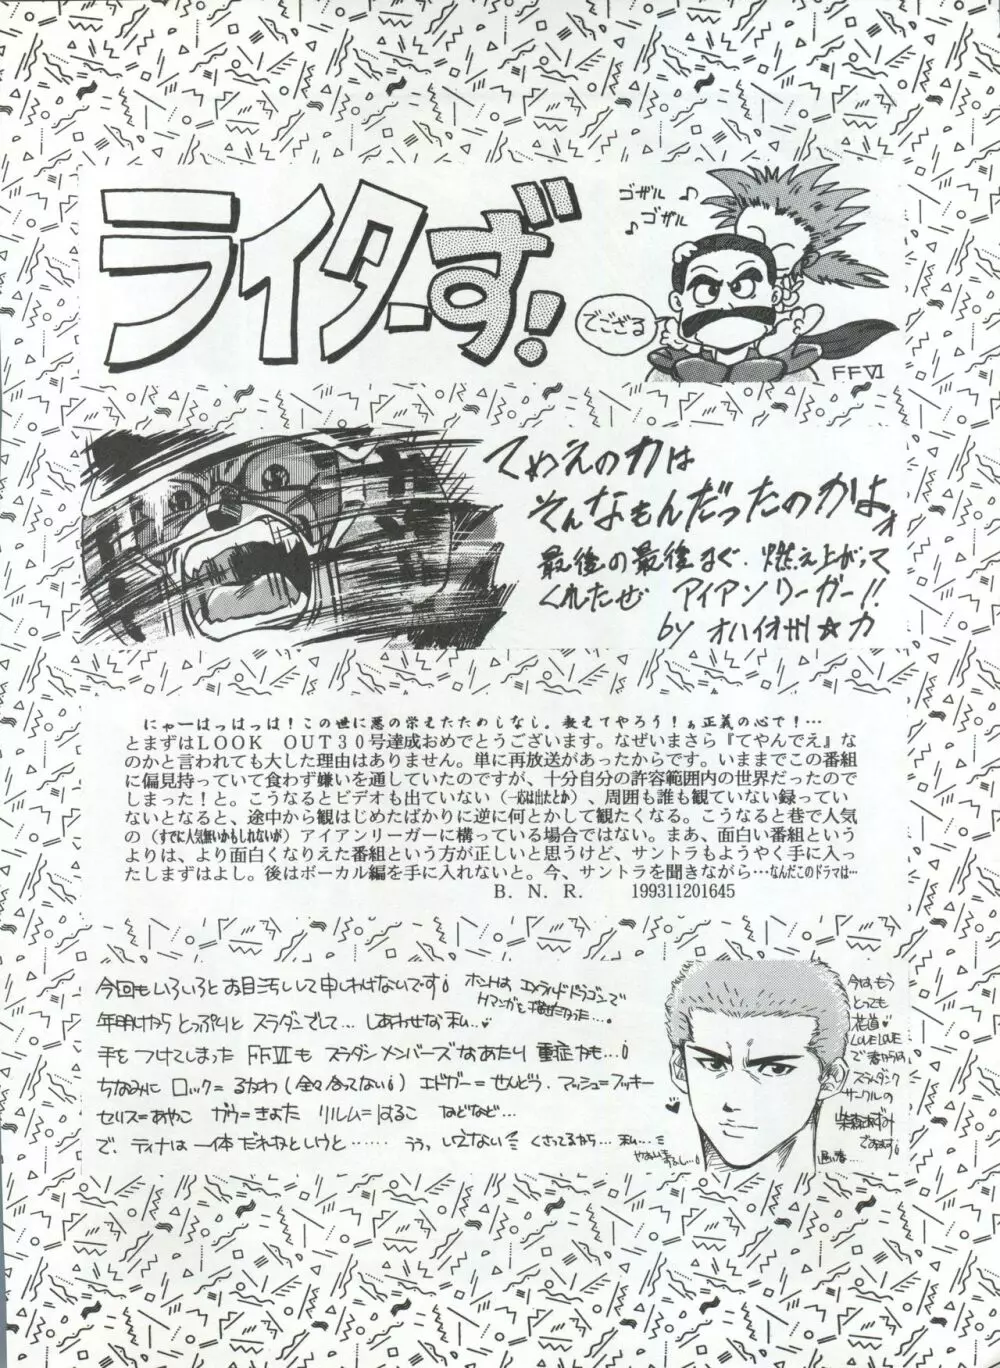 ライターず!
ゴザル♪
♪ゴザル
でござる
FFVI
てめえの力は
そんなもんだったのかよォ
最後の最後まで、燃え上がって
くれたぜ アイアンリーガー!!
by オハイオ州☆力
にゃーはっはっは!この世に悪の栄えたためしなし。教えてやろう!ぁ正義の心で!…
とまずはLOOK OUT30号達成おめでとうございます。なぜいまさら『てやんでえ』な
のかと言われても大した理由はありません。単に再放送があったからです。いままでこの番組
に偏見持っていて食わず嫌いを通していたのですが、十分自分の許容範囲内の世界だったので
しまった!と。こうなるとビデオも出ていない(一応は出たとか)、周囲も誰も観ていない録ってい
ないとなると、途中から観はじめたばかりに逆に何とかして観たくなる。こうなると巷で人気
の(すでに人気無いかもしれないが)アイアンリーガーに構っている場合ではない。まあ、面白い番組という
よりは、より面白くなりえた番組という方が正しいと思うけど、サントラもようやく手に入っ
たしまずはよし。後はボーカル編を手に入れないと。今、サントラを聞きながら…なんだこのドラマは…
B.N.R. 199311201645
今回もいろいろとお目汚しして申しわけないです! ホントは エメラルドドラゴンで
マンガを描きたかった…。
年明けから とっぷりと スラダンでして… しあわせな私…♥
手をつけてしまった FFVIも スラダンメンバーズなあたり 重症かも…!
ちなみに ロック=るかわ(全々合ってない!) エドガー=せんどう、マッシュ=フッキー
セリス=あやこ ガウ=きよた リルム=はるこ などなど…
で、ティナは一体だれかというと…… うぅっ しえない くさってるから… 私…
今はもう
とっても
花道♥
LOVE LOVE
で
スラムダンク
サークルの
柴森あずみ
でした!